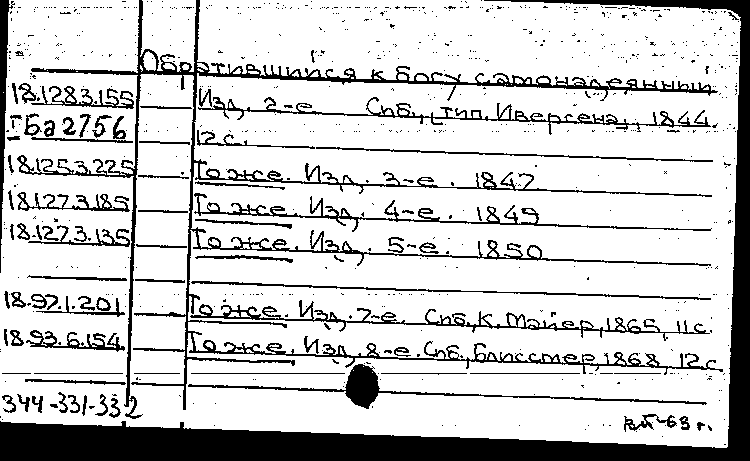 Обратившийся к богу самонадеянный
18.128.3.155 Изд. 2-е Спб., тип. Иверсена, 1844.
ГБа2756 12 с.
18.125.3.225 То же. Изд. 3-е. 1847
18.127.3.185 То же. Изд. 4-е. 1849
18.127.3.135 То же. Изд. 5-е. 1850
18.97.1.201 То же. Изд. 7-е. Спб., К. Мэйер, 1865, 11 с.
18.93.6.154 То же. Изд. 8-е. Спб., Блисстер, 1868, 12 с.
344-331-332